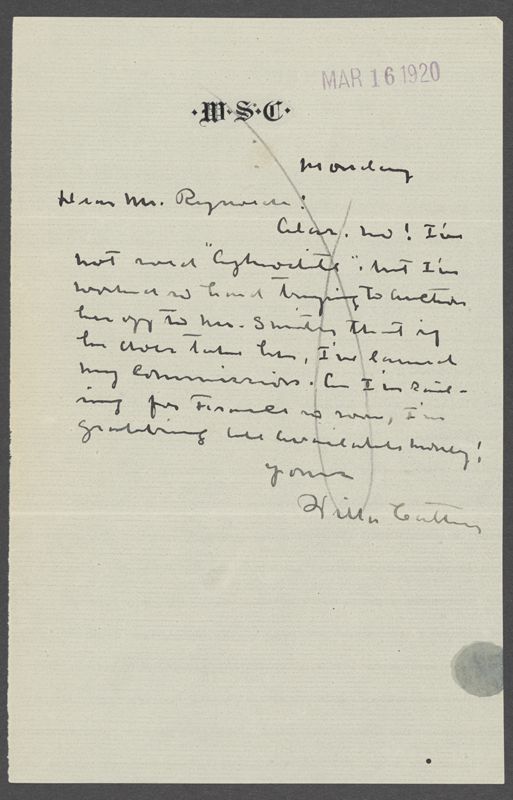 MAR 16 1920
·W·S·C·
Monday
Dear Mr. Reynolds:
Alas, no! I've
not sold "Aphrodite", but I've
worked so hard trying to auction
her off to Mr. Smith that if
he does take her, I've earned
my commission. As I'm sail-
ing for France so soon, I'm
grabbing all available money!
Yours
Willa Cather